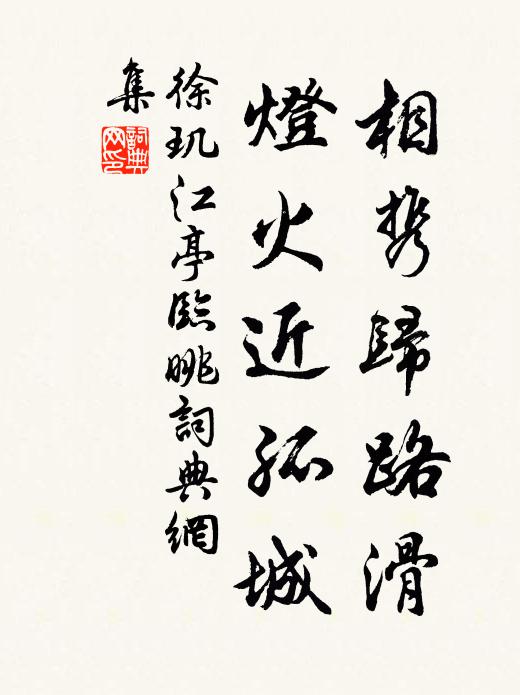 相携歸路滑
燈火近孤城
徐玑江亭臨眺詞典網
集
詞典
网印